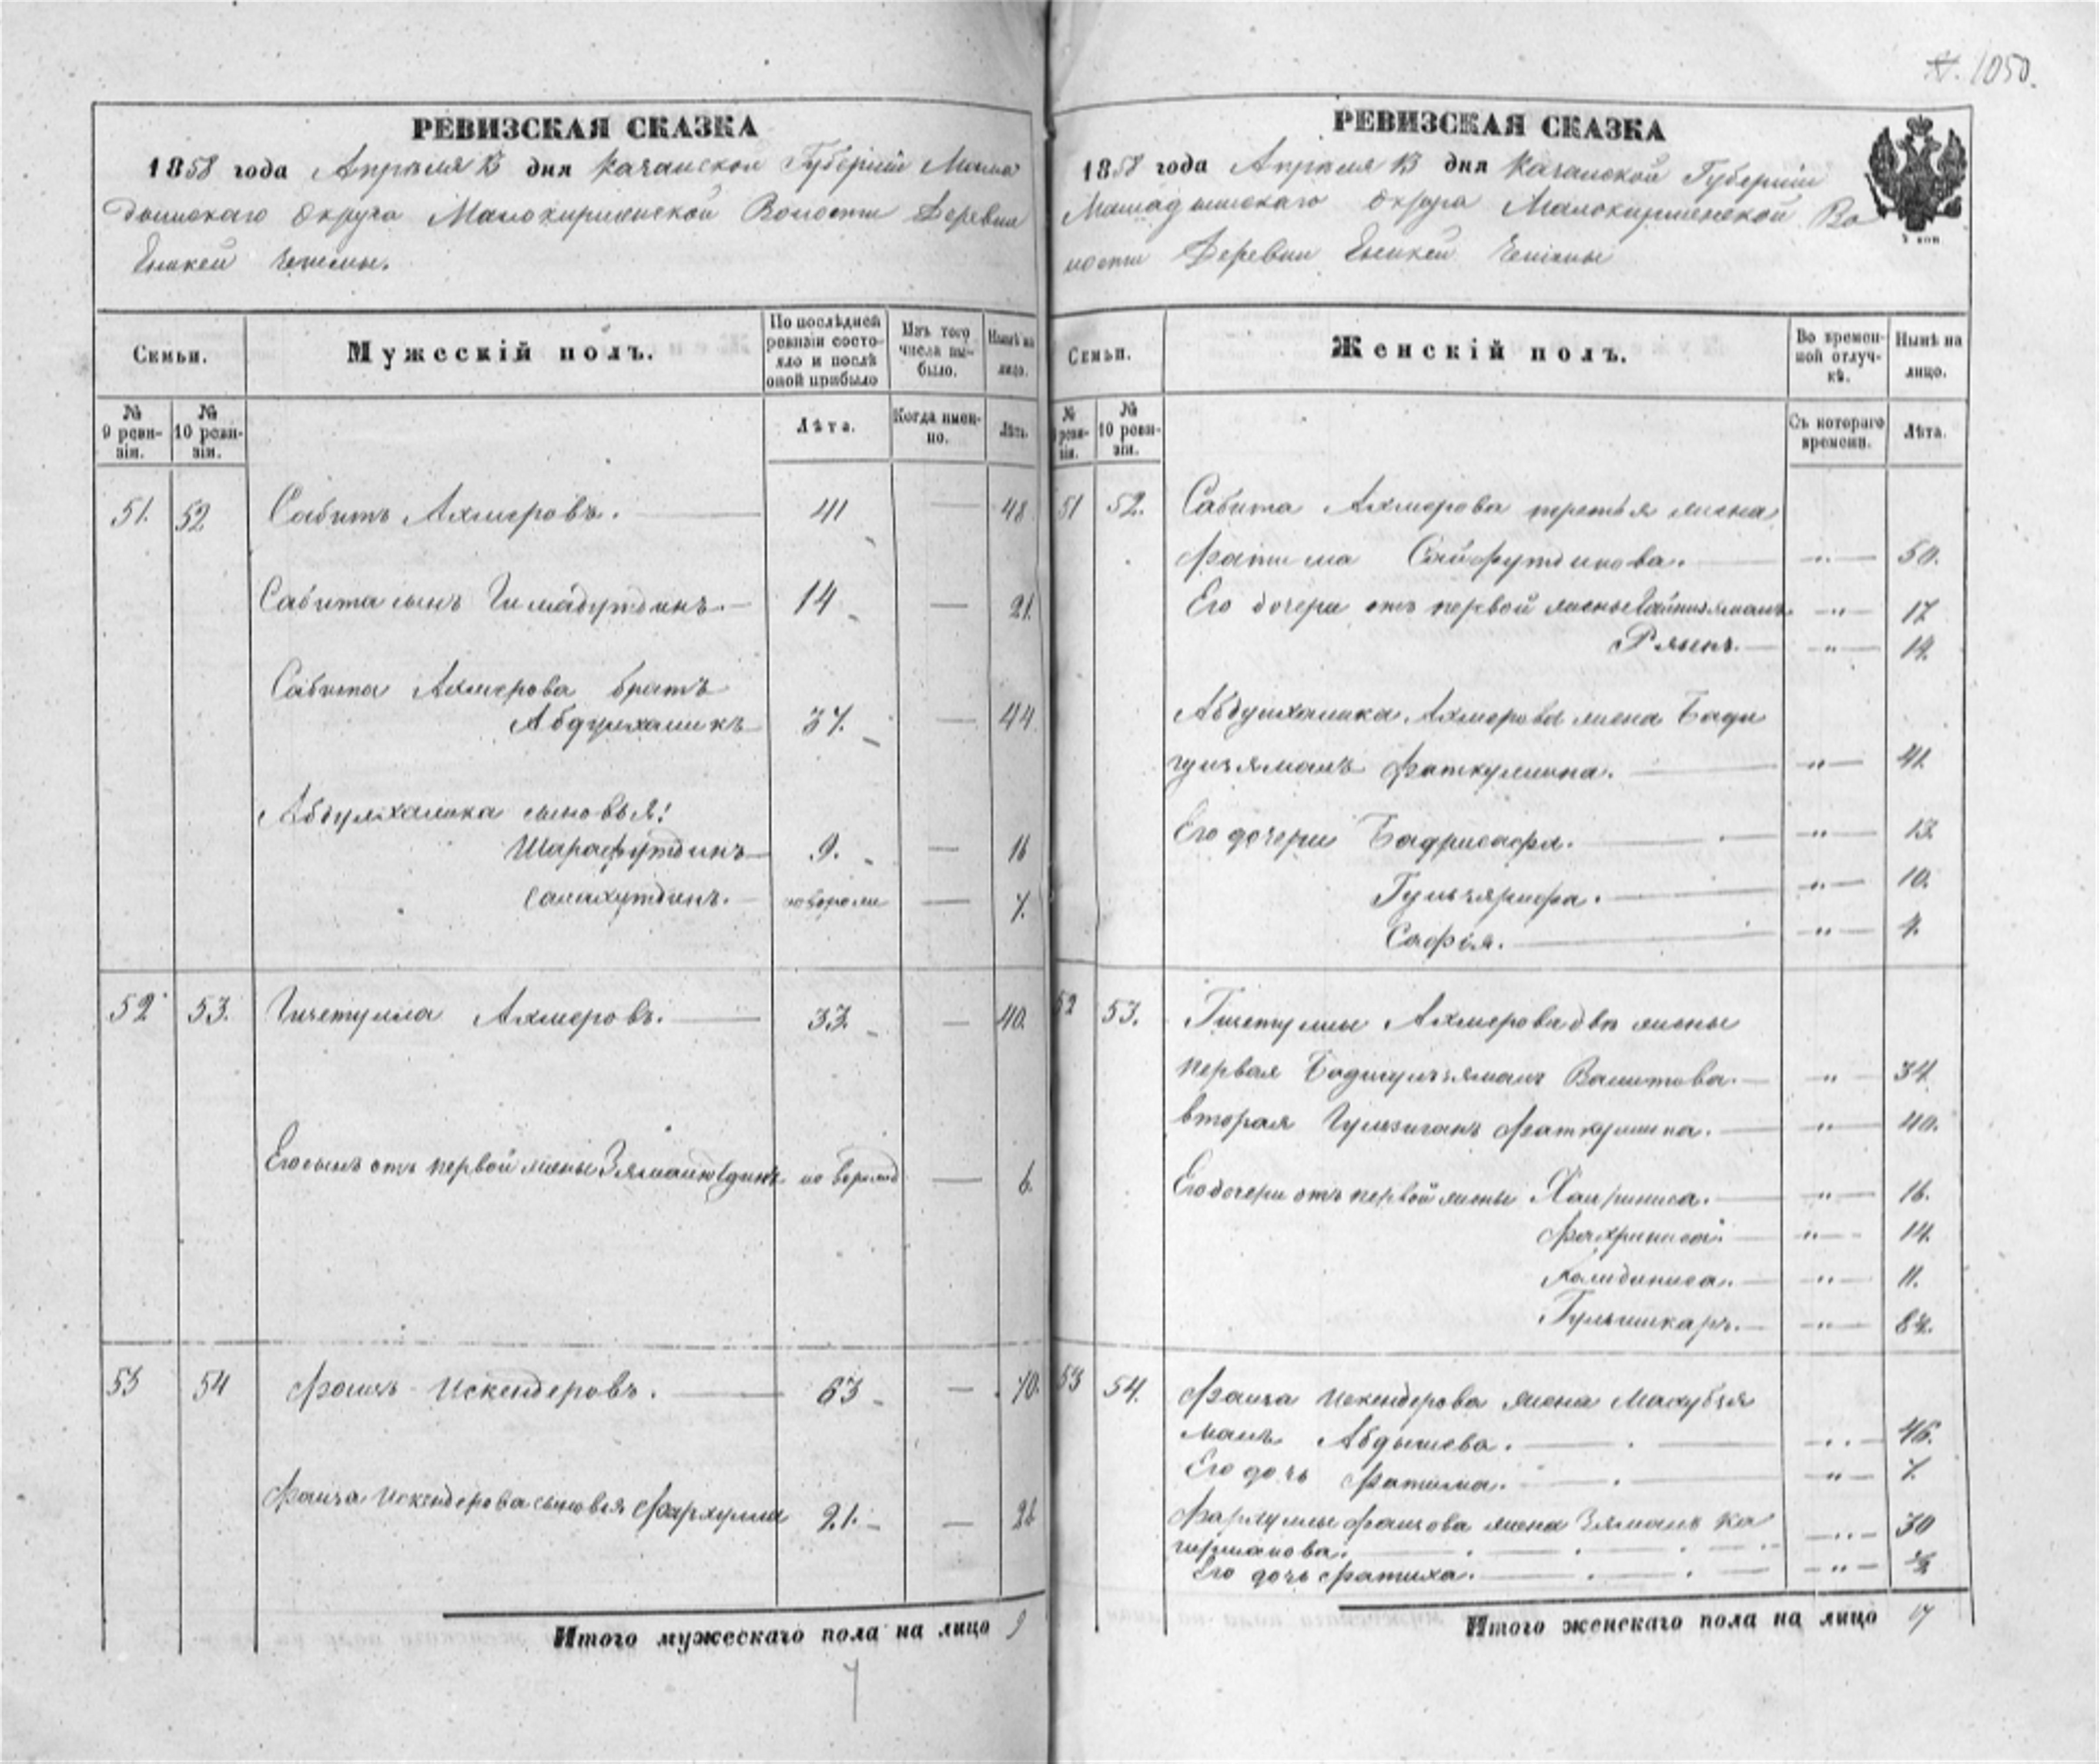 №. 1050.
РЕВИЗСКАЯ СКАЗКА
1858 года Апрѣля 13 дня Казанской Губерніи Мама
дышскаго Округа Малокирменской Волости Деревни
Чешмы.
Семьи.
Мужескій полъ.
По послѣдней ревизіи состояло и послѣ оной прибыло
Изъ того числа выбыло.
Нынѣ на лицо.
№ 9 ревизіи.
№ 10 ревизіи.
Лѣта.
Когда именно.
Лѣта.
51. 52 Сабитъ Ахмеровъ. 41 — 48
Сабита сынъ Гимадутдинъ. 14 — 21.
Сабита Ахмерова братъ
Абдулхаликъ 37. — 44
Абдулхалика сыновья:
Шарафутдинъ 9. — 16
Салахутдинъ. новорожд — 7.
52 53. Гизетулла Ахмеровъ. 33. — 40.
Его сынъ отъ первой жены новорожд — 6.
53 54 Фаизъ Искендеровъ. 63 — 70.
Фаиза Искендерова сыновья Фархулла 21. — 28
Итого мужескаго пола на лицо 9
РЕВИЗСКАЯ СКАЗКА
1858 года Апрѣля 13 дня Казанской Губерніи
Мамадышскаго Округа Малокирменской Во
лости Деревни Чешмы
Семьи.
Женскій полъ.
Во временной отлучкѣ.
Нынѣ на лицо.
№ 9 ревизіи.
№ 10 ревизіи.
Съ котораго времени.
Лѣта.
51 52. Сабита Ахмерова третья жена
Фатима Сайфутдинова. „ — 50.
Его дочери отъ первой жены „ — 17
„ — 14.
Абдулхалика Ахмерова жена Бади
гулзямалъ Фаткуллина. „ — 41.
Его дочери Бадрисафа. „ — 13.
„ — 10.
Софія. „ — 4.
52 53. Гизетуллы Ахмерова двѣ жены
первая Бадигулзямалъ Валитова. „ — 34
вторая Фаткуллина. „ — 40.
Его дочери отъ первой жены Хаирниса. „ — 16.
Фахриниса. „ — 14.
Халидиниса. „ — 11.
„ —
53 54. Фаиза Искендерова жена Махубзя
малъ Абдышева. „ — 46.
Его дочь Фатима. „ — 7.
Фархуллы Фаизова жена Зямалъ Ка
гирманова. „ — 30
Его дочь Фатиха. „ — ½
Итого женскаго пола на лицо 17